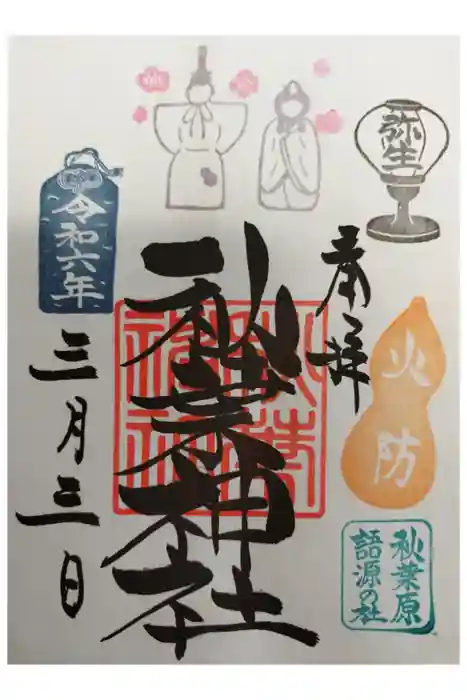 弥生
奉拝
火防
秋葉原
語源の社
秋葉神社
秋葉
神社
令和六年
三月三日